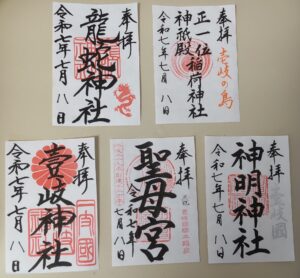 奉拝
龍蛇神社
令和七年七月八日
奉拝
壱岐の島
正一位稲荷神社
神祇殿
令和七年七月八日
奉拝
壹岐神社
一支國
令和七年七月八日
奉拝
聖母宮
令和七年
七月八日
奉拝
壱岐國
神明神社
令和七年七月八日